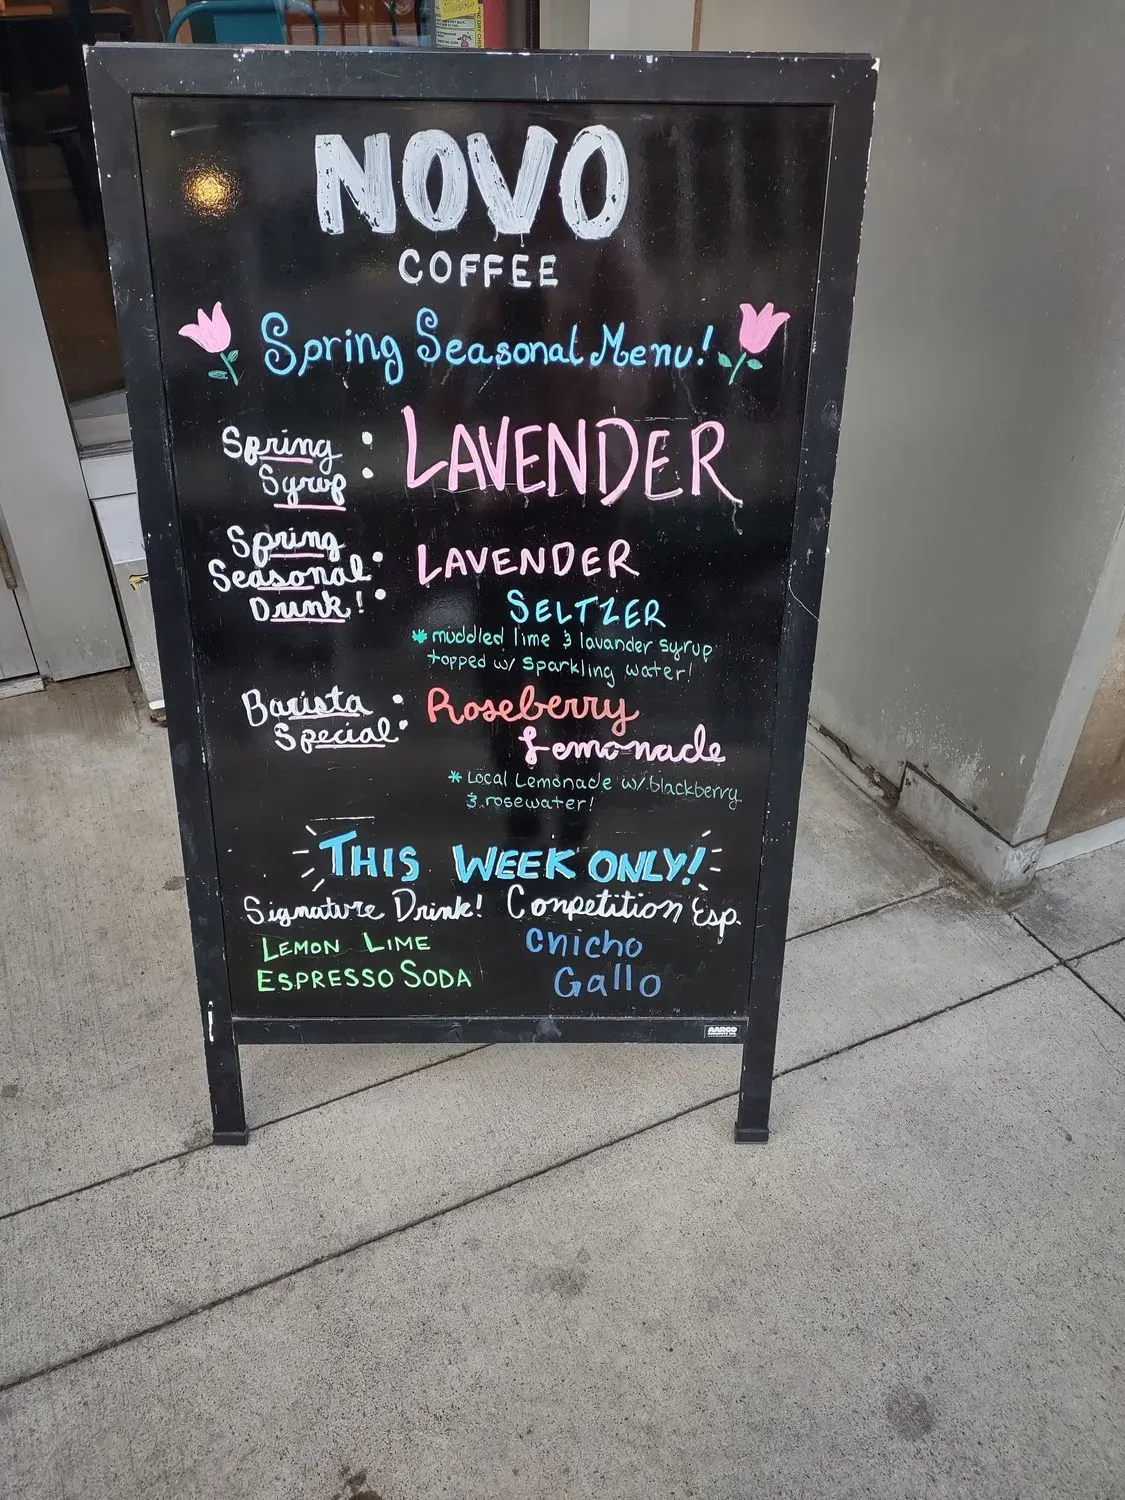 NOVO
COFFEE
Spring Seasonal Menu!
Spring
Syrup : LAVENDER
Spring
Seasonal
Drink! : LAVENDER
SELTZER
* muddled lime & lavander syrup
topped w/ sparkling water!
Barista
Special : Roseberry
Lemonade
* Local Lemonade w/ blackberry
& rosewater!
THIS WEEK ONLY!
Signature Drink! Conpetition Esp.
LEMON LIME
ESPRESSO SODA
Chicho
Gallo
AARCO